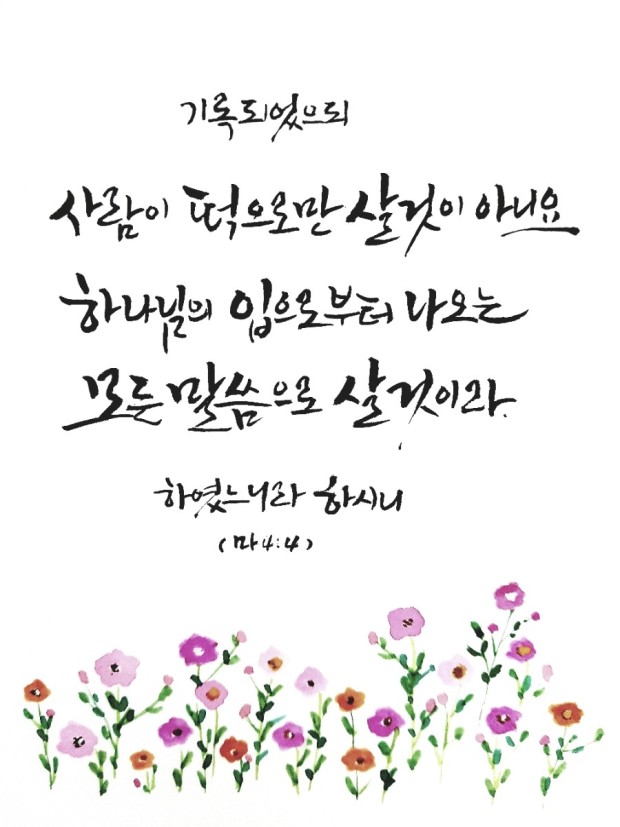 기록되었으되
사람이 떡으로만 살것이 아니요
하나님의 입으로부터 나오는
모든 말씀으로 살것이라.
하였느니라 하시니
(마4:4)